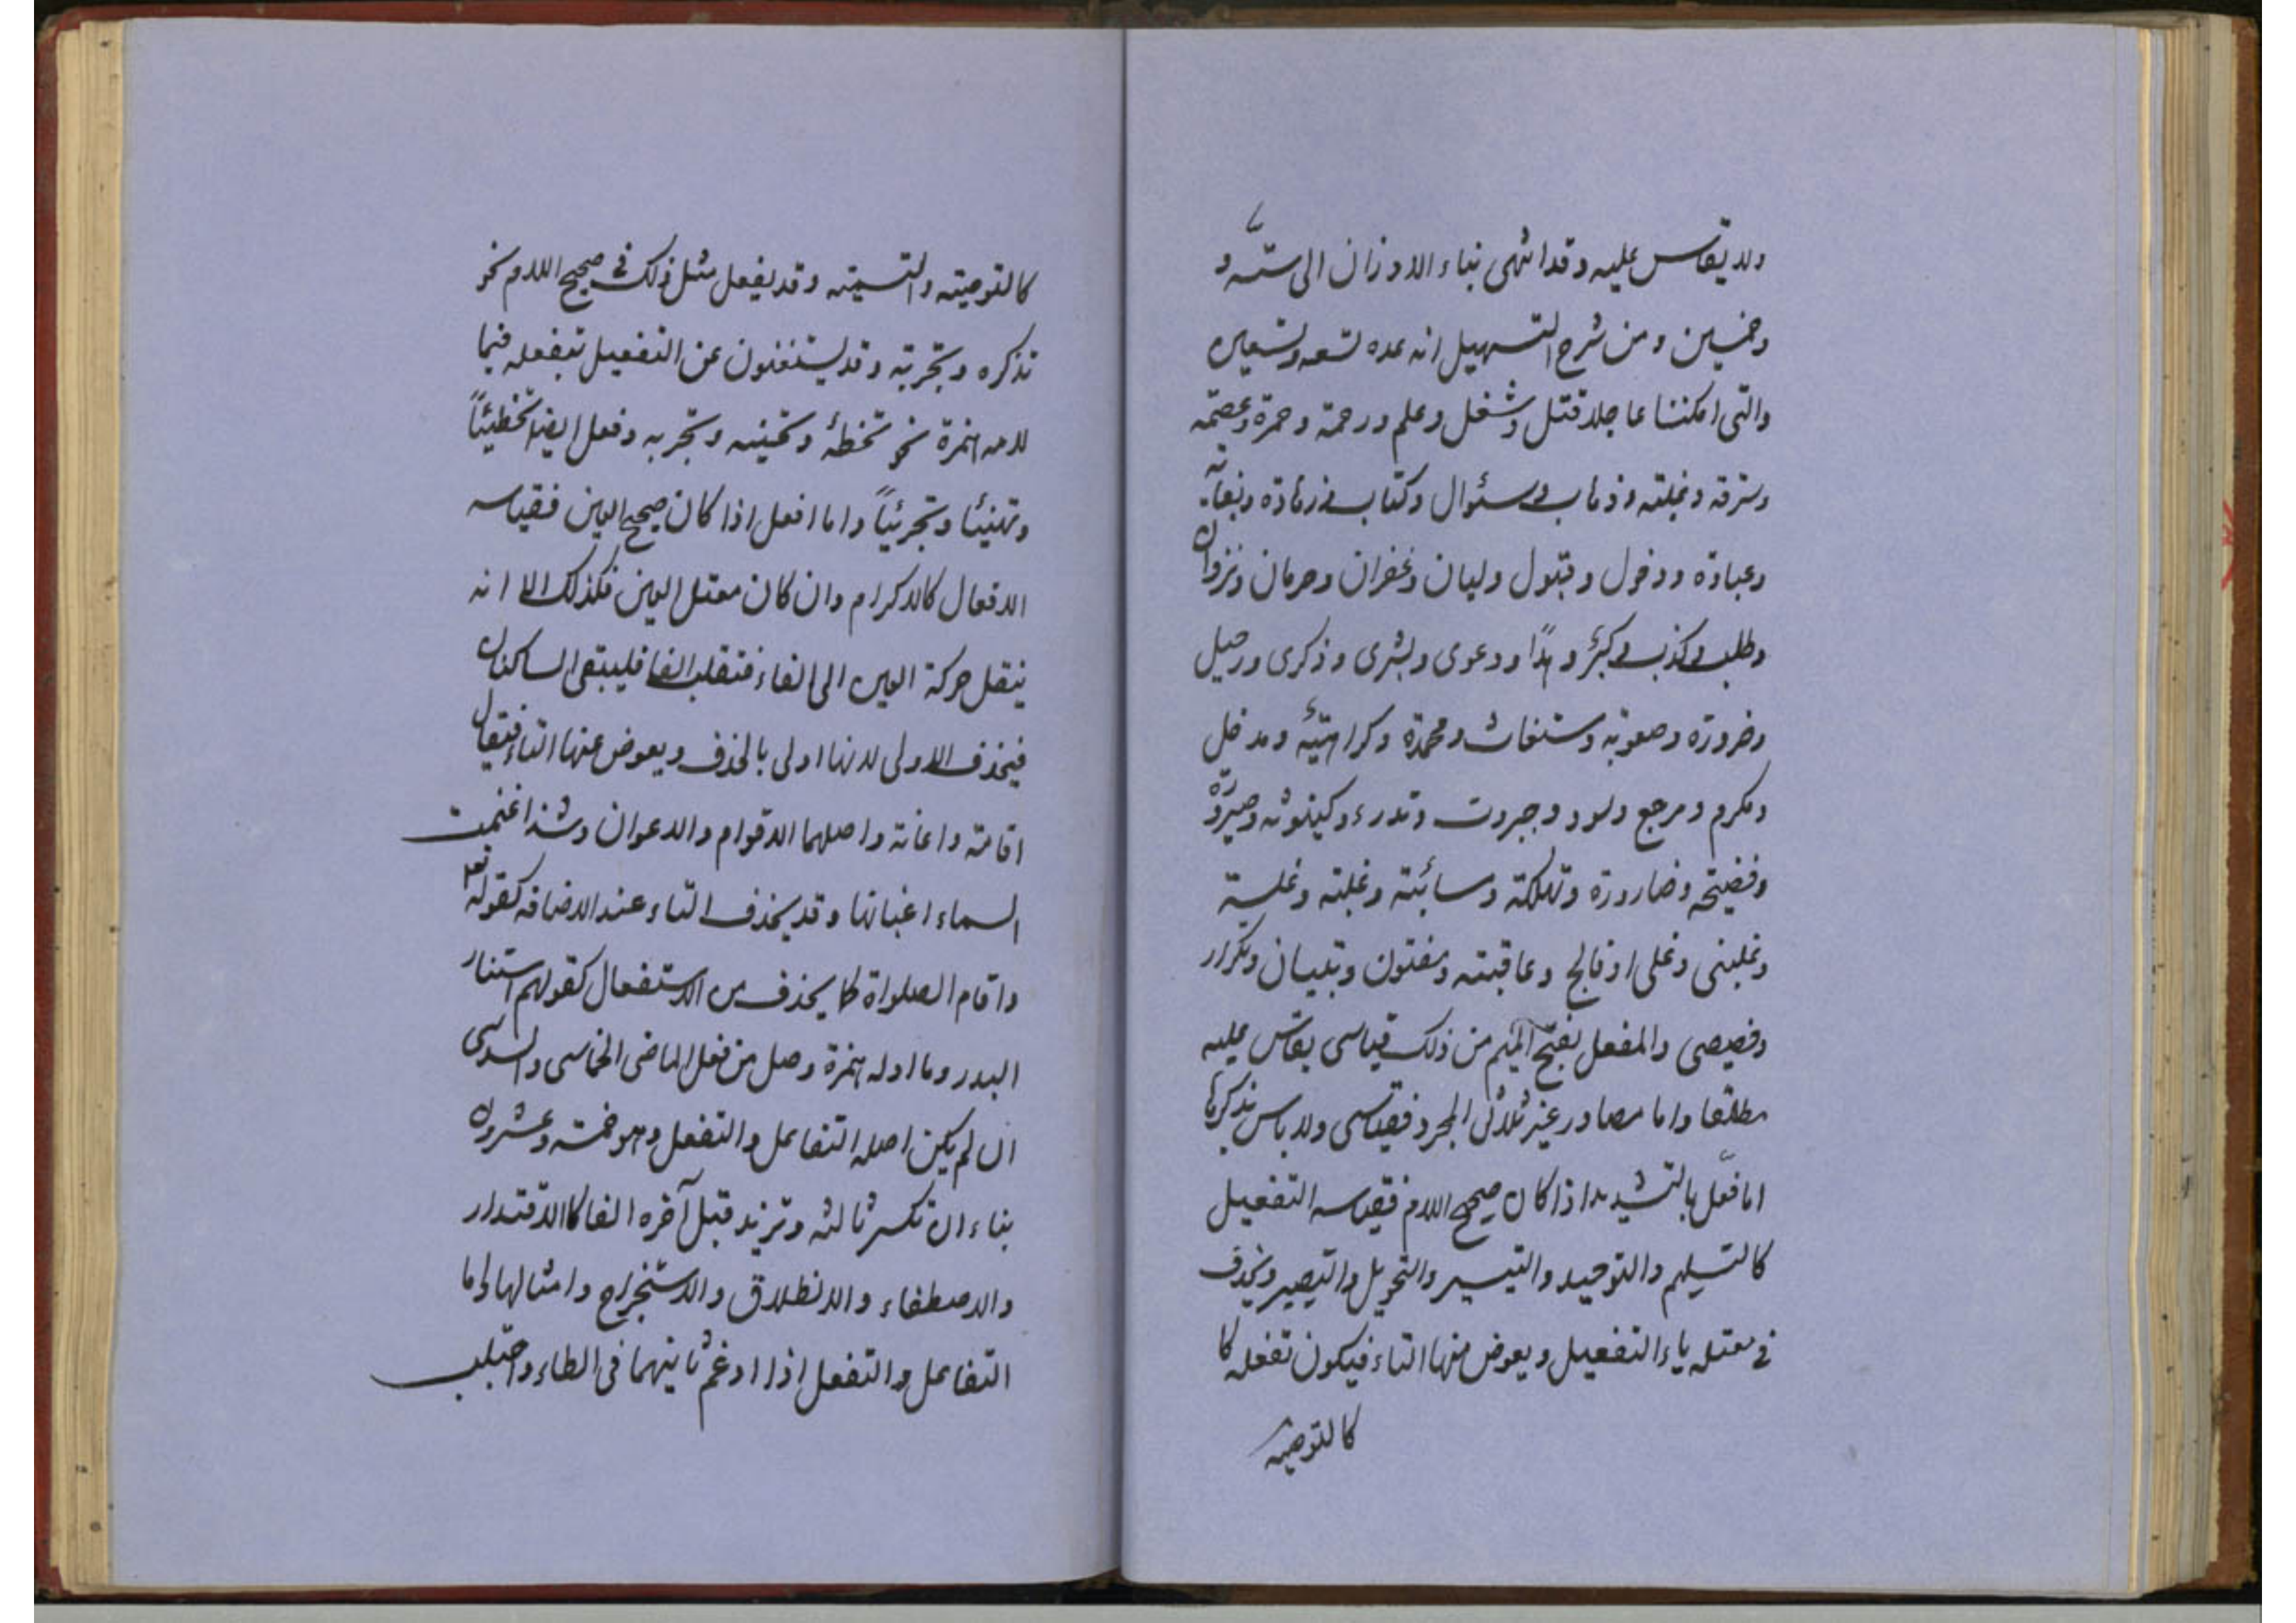 ولا يقاس عليه وقد انتهى بناء الاوزان الى ستة و
وخمسين ومن شرح التسهيل انه عده تسعه وتسعين
والتى امكننا عاجلا قتل وشغل وعلم ورحمة وحمرة وعصمة
وسرقه وغلبته وذهاب وسئوال وكتاب وزهادة وبغاية
وعبادة ودخول وقبول وليان وغفران وحرمان ونزوان
وطلب وكذب وكبر وهدًا ودعوى وبشرى وذكرى ورحيل
وضرورة وصعوبه ومحمدة وكراهيّة ومدخل
ومكرم ومرجع وجبروت وتدرء وكينونه وصيرورة
وفضيحه وضارورة وتهلكة وسائبته وغلبته وغلبتة
وغلبنى وغلى اوفالج وعاقبته ومفتون وتبيان وتكرار
وخصيصى والمفعل بفتح الميم من ذلك قياسى يقاس عليه
مطلقا واما مصادر غير ثلاثى المجرد فقياسى ولا باس بذكرها
اما فعّل بالتشديد اذا كان صحيح اللام فقياسه التفعيل
كالتسليم والتوحيد والتيسير والتحويل والتبصير ويحذف
في معتله ياء التفعيل ويعوض منها التاء فيكون تفعله كا
كالتوصية
كالتوصيته والتسميته وقد يفعل مثل ذلك في صحيح اللام نحو
تذكره وتجربته وقد يستغنون عن التفعيل بتفعله فيما
لامه همزة نحو تخطئه وتهنيه وتجربه وفعل ايضا تخطيئاً
وتهنيئا وتجرئيئاً واما افعل اذا كان صحيح العين فقياسه
الافعال كالاكرام وان كان معتل العين فكذلك الا انه
ينتقل حركة العين الى الفاء فتقلب الفا فليبتقى الساكنان
فيحذف الاولى لانها اولى بالحذف ويعوض عنها التاء فيقال
اقامته واعانته واصلهما الاقوام والاعوان وشذ اغنمت
السماء اغباتها وقد يحذف التاء عند الاضافه كقوله تعم
واقام الصلواة كما يحذف من الاستفعال كقولهم استنار
البدر وما اوله همزة وصل من فعل الماضى الخماسى والسداسى
ان لم يكن اصله التفاعل والتفعل وهو خمسة وعشرون
بناء ان تكسر ثالثه وتزيد قبل آخره الفا كالاقتدار
والاصطفاء والانطلاق والاستخراج وامثالها اما
التفاعل والتفعل اذا ادغم ثانيهما فى الطاء واجتلب